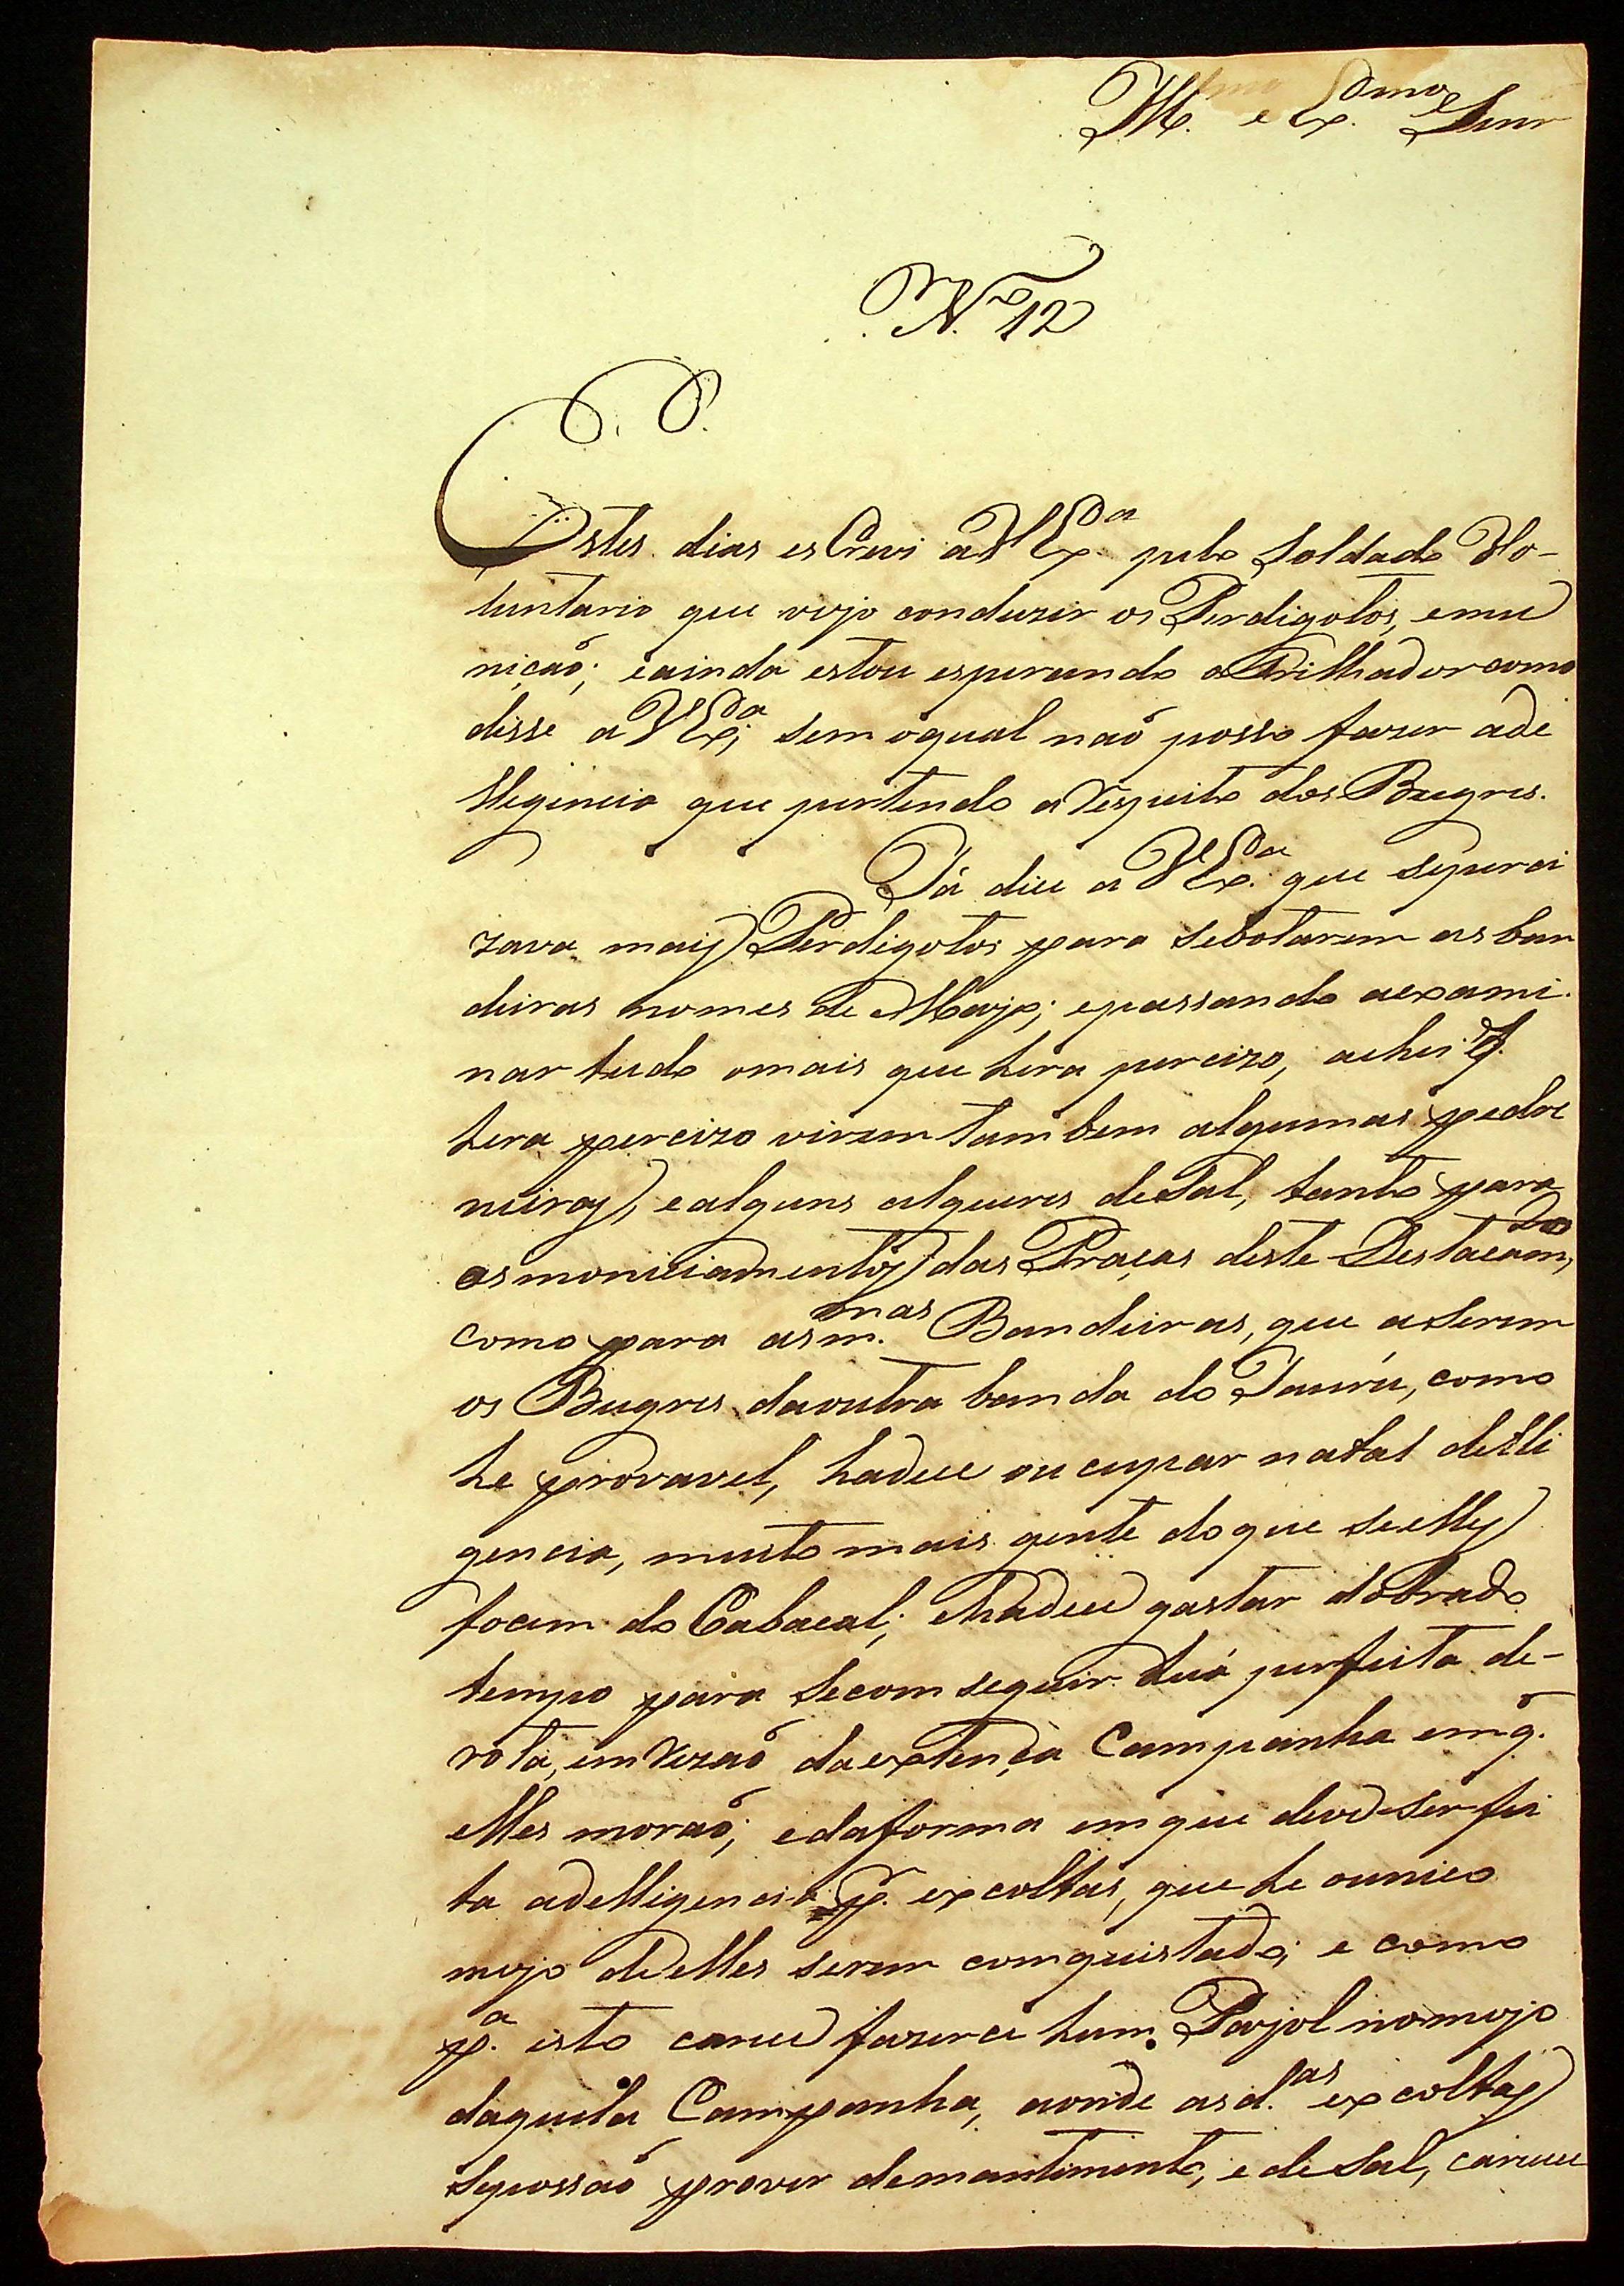 Ill.mo e Ex.mo Senr
N.o 12
Estes dias escrevi a V Ex.a pelo Soldado Vo-
luntario que vejo conduzir os Perdigotos, emu
nicaõ; eainda estou esperando o Trilhador como
disse a V Ex.a; sem oqual naõ posso fazer ade
llegencia que pertendo a respeito dos Bugres.
Já dice a V Ex.a que seperci
zava mais Perdigotos para sebotarem as ban
deiras nomes de Mayo; epassando aexami-
nar tudo omais que hera percizo, achei q.
hera percizo virem tambem algumas pedre
neiras, ealguns alqueires desal, tanto para
os moniciamentos das Praças deste Destacam.to
como para as m.mas Bandeiras, que aserem
os Bugres daoutra banda do Jaurú, como
he provavel, hadece oucupar natal delli
gencia, muito mais gente doque seelles
focem do Cabacal; ehadece gastar dobrado
tempo para secomseguir huá perfeita de-
rota, em rezaõ daextença Campanha em q.
elles moraõ; edaforma emque deve ser fei
ta adelligencia p.r excoltas, que he ounico
mojo de elles serem comquistado; e como
p.a isto carece fazerce hum Payol nomojo
daquela Campanha, aonde as d.as excoltas
sepossaõ prover demantimento, e de Sal, carece